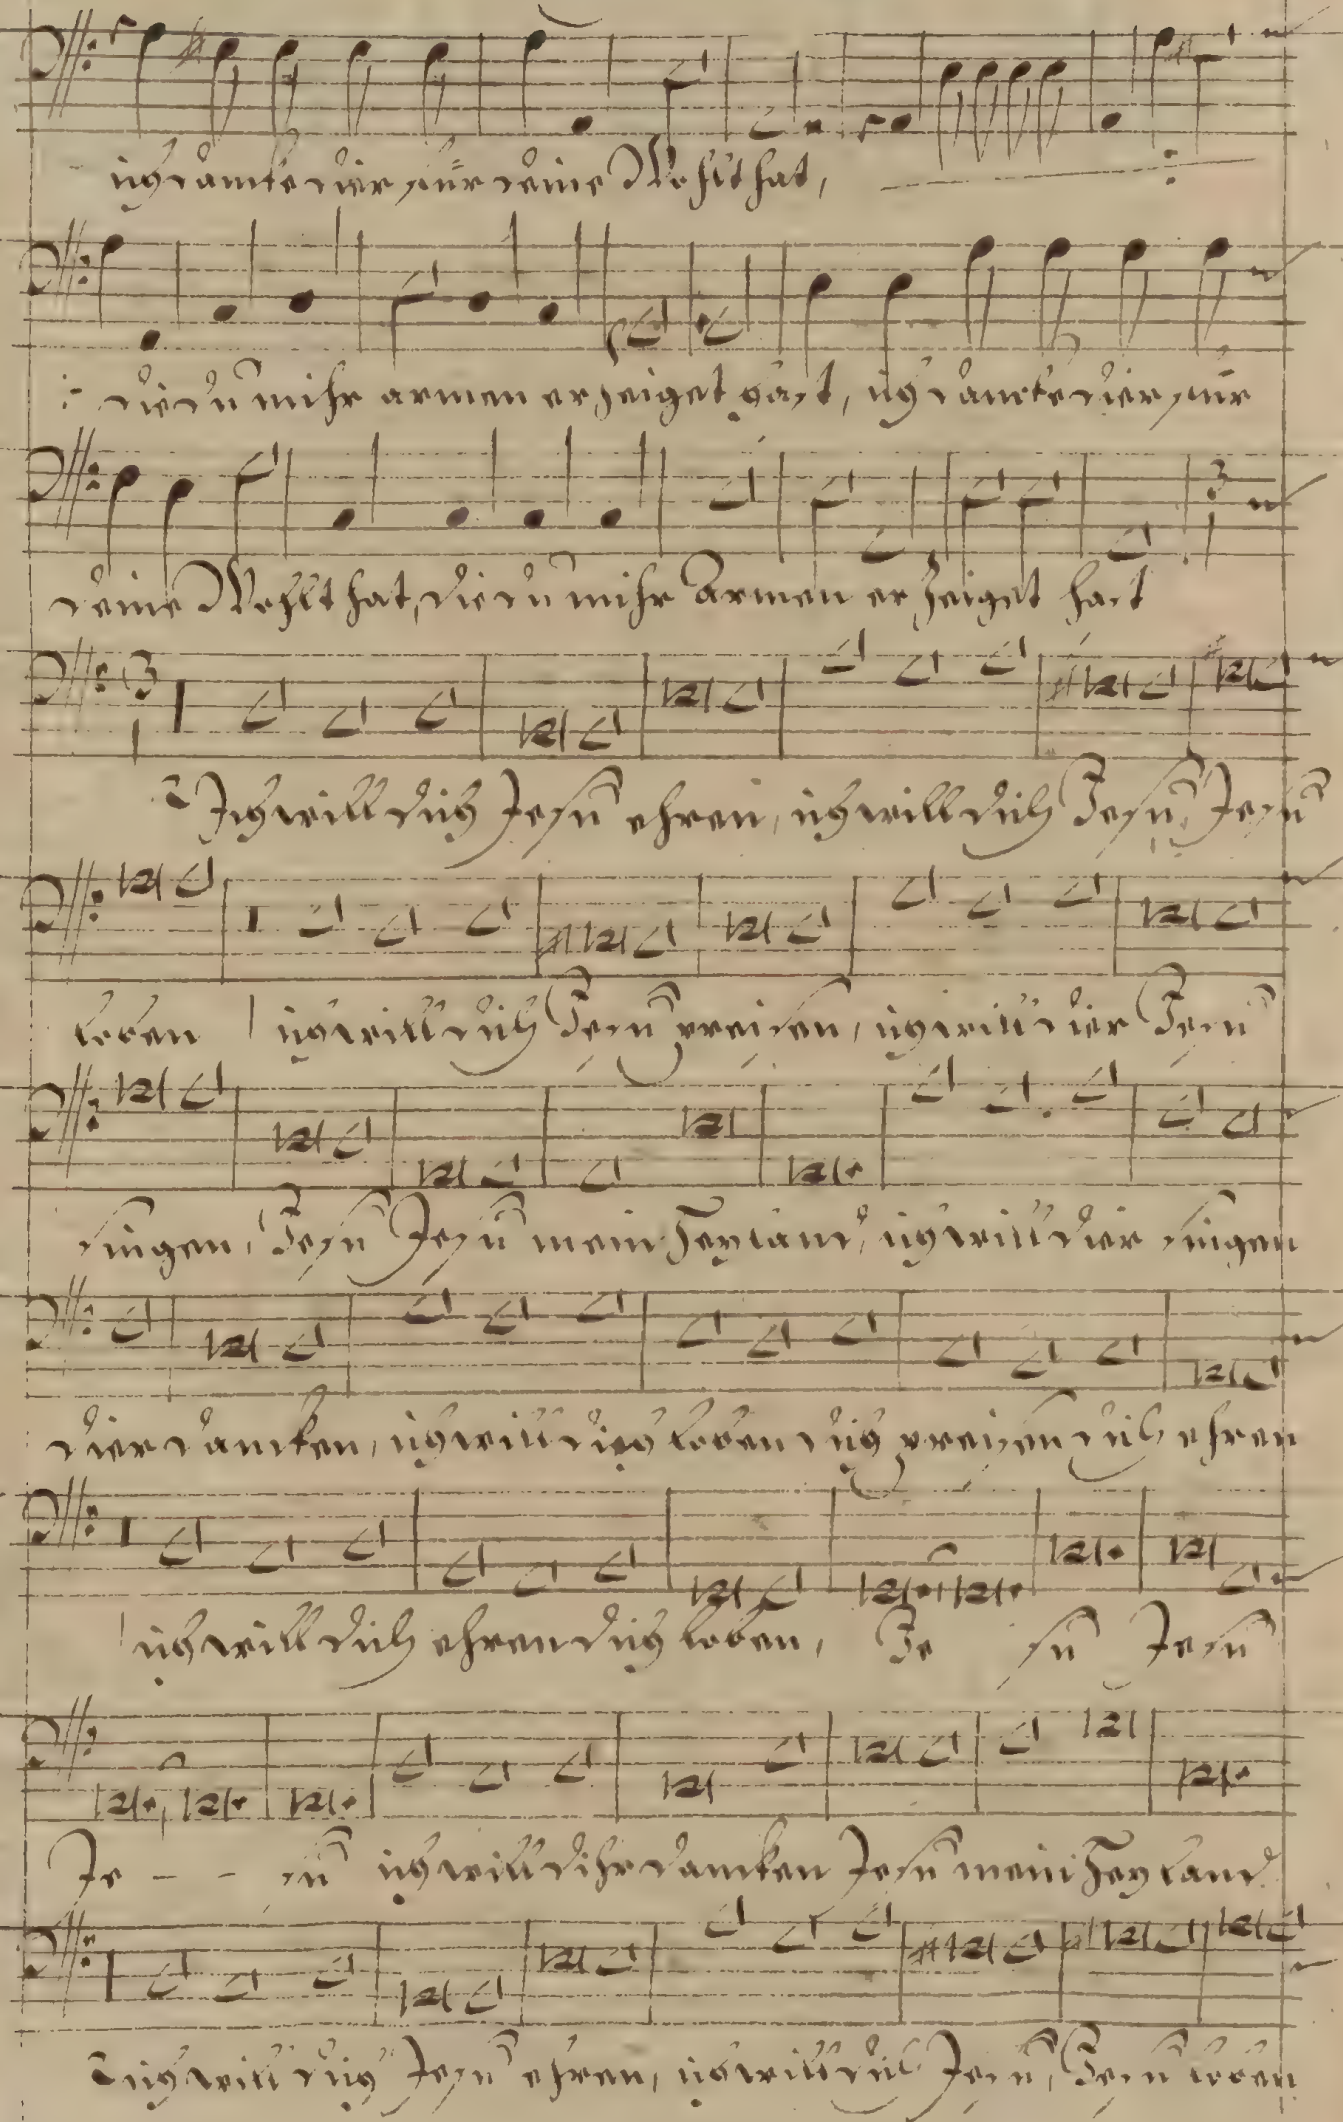 ich dancke dier vür deine Wohlthat,
die du mihr armen erzeiget hast, ich dancke dier vür
deine Wohlthat, die du mihr Armen erzeiget hast
Ich will dich Jesu ehren, ich will dich Jesu, Jesu
loben ich will dich Jesu preisen, ich will dier Jesu
singen, Jesu Jesu mein Heyland, ich will dier singen
dier dancken, ich will dich loben dich preisen dich ehren
ich will dich ehren dich loben, Je su Jesu
Je - - su ich will dihr dancken Jesu mein Heyland
ich will dich Jesu ehren, ich will dich Jesu, Jesu loben